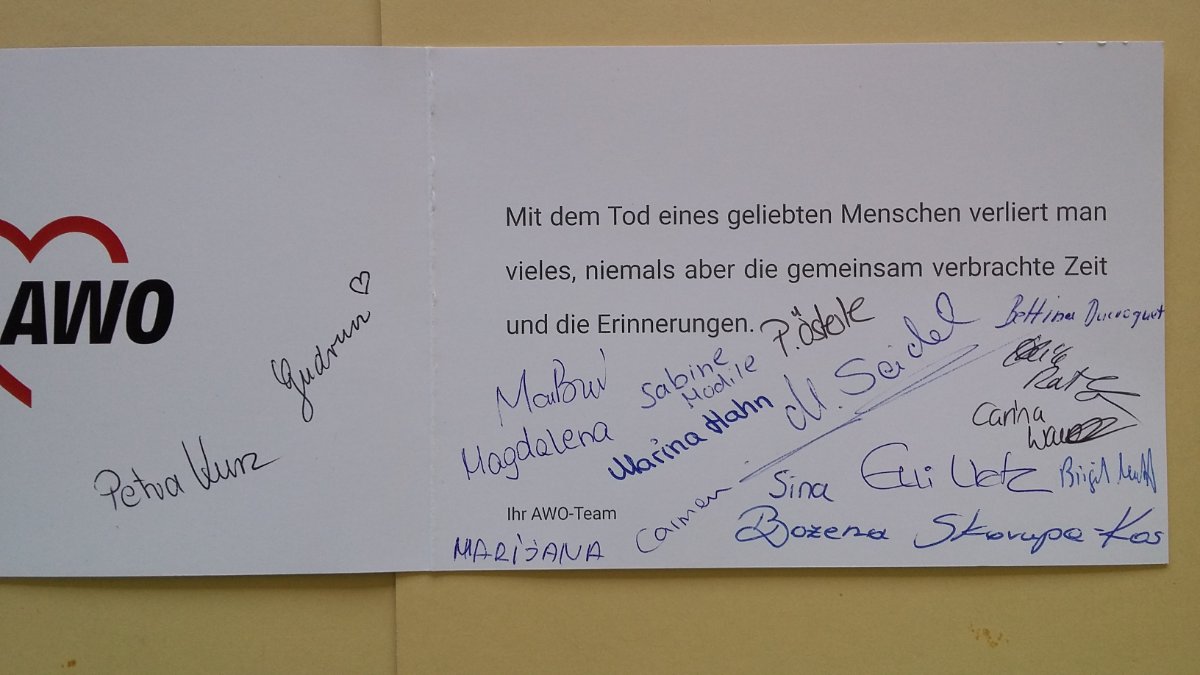 AWO
Gudrun
Petra Kurz
Mit dem Tod eines geliebten Menschen verliert man
vieles, niemals aber die gemeinsam verbrachte Zeit
und die Erinnerungen.
P. Österle
Bettina
M. Seidel
Sabine
Modile
Marina Hahn
Magdalena
Ratz
Carina
Sina
Elli Uetz
Birgit
Ihr AWO-Team
Carmen
Bozena Skorupa-Kos
MARIJANA